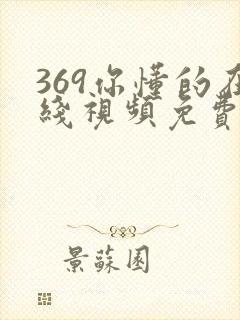 369你懂的在
綫視頻免費
景蘇園